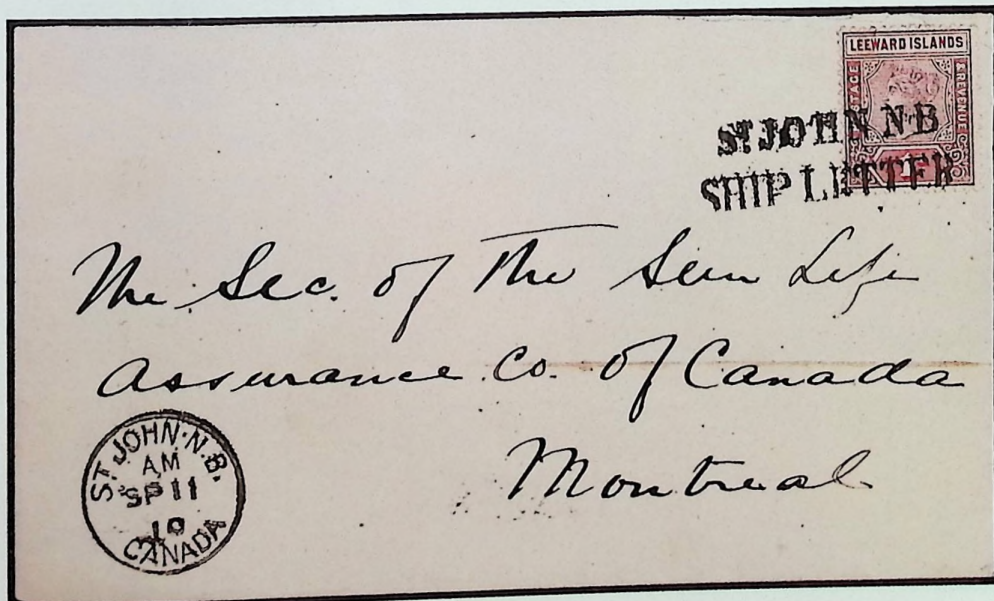 LEEWARD ISLANDS
POSTAGE
& REVENUE
ST JOHN N B
SHIP LETTER
The Sec. of The Sun Life
Assurance Co. of Canada
Montreal
ST. JOHN. N.B.
AM
SP 11
10
CANADA